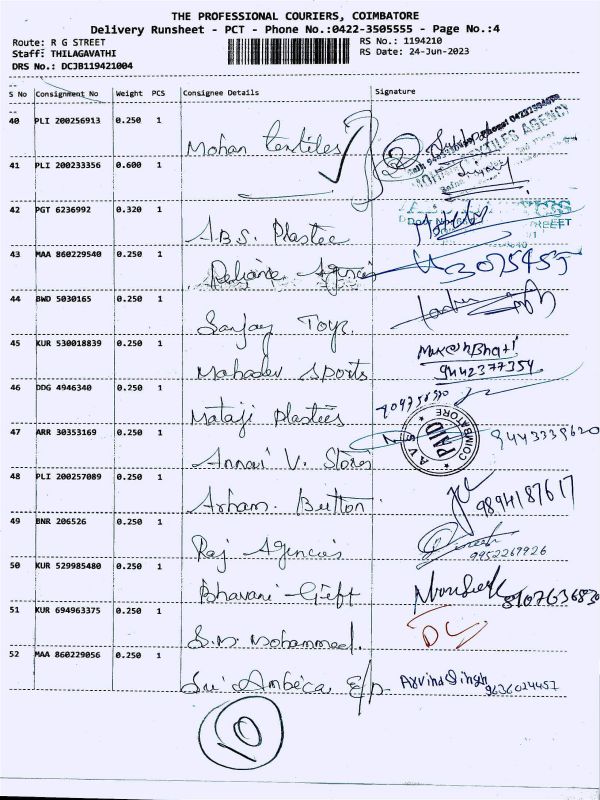 THE PROFESSIONAL COURIERS, COIMBATORE
Delivery Runsheet - PCT - Phone No.:0422-3505555 - Page No.:4
Route: R G STREET RS No.: 1194210
Staff: THILAGAVATHI RS Date: 24-Jun-2023
DRS No.: DCJB119421004
S No Consignment No Weight PCS Consignee Details Signature
40 PLI 200256913 0.250 1
Mohan textiles
41 PLI 200233356 0.600 1
42 PGT 6236992 0.320 1
A.B.S. Plastic
43 MAA 860229540 0.250 1
Reliance Agencies 3075455
44 BWD 5030165 0.250 1
Sanjay Toys
45 KUR 530018839 0.250 1
Mukesh Bhati
Mahadev Sports 9442377354
46 DDG 4946340 0.250 1
Mataji Plastics
47 ARR 30353169 0.250 1
AVS PAID COIMBATORE
9443339620
Annai V. Stores
48 PLI 200257089 0.250 1
Arham Button 9894187617
49 BNR 206526 0.250 1
Dinesh
Raj Agencies 9952267926
50 KUR 529985480 0.250 1
Bhavani Gift 8107636830
51 KUR 694963375 0.250 1
DC
S.M. Mohammed.
52 MAA 860229056 0.250 1
Sri Ambica E/p. Arvind Singh
9636024457
10